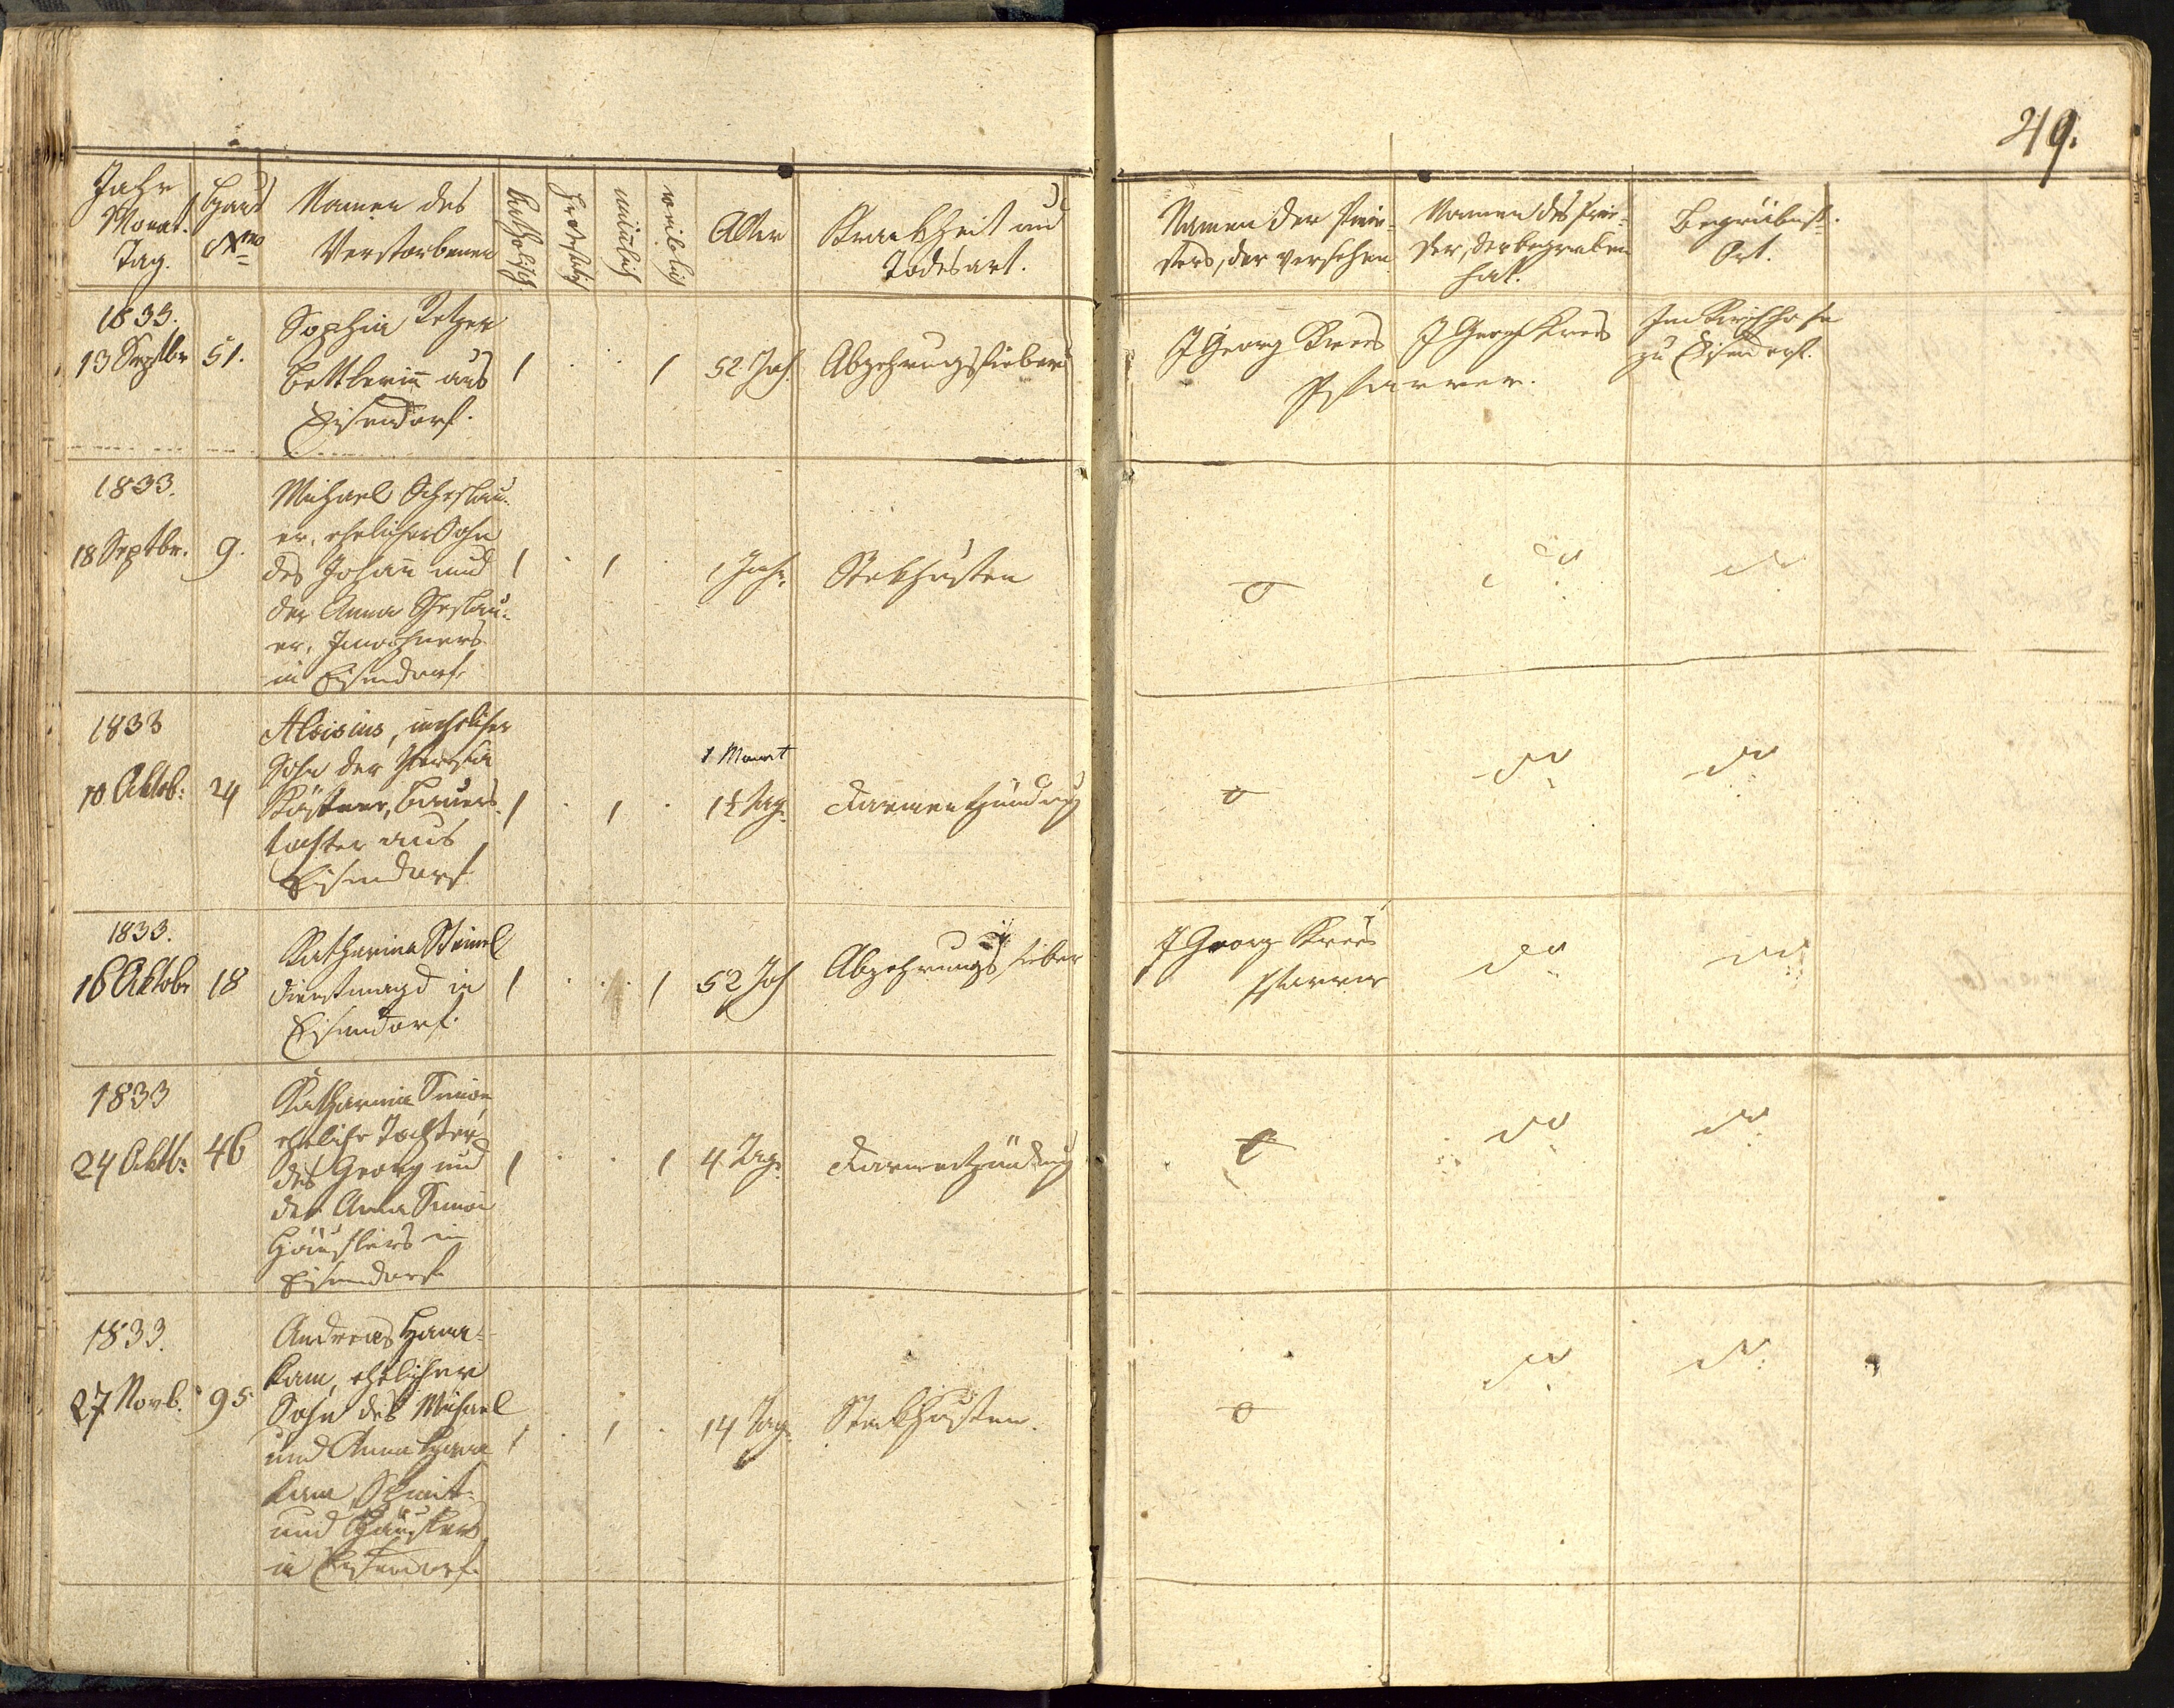 49.
Jahr
Monat.
Tag.
Haus
Nro
Namen des
Verstorbenen
katholisch
protest.
männlich
weiblich
Alter
Krankheit und
Todesart.
Namen des Prie-
sters, der versehen
Namen des Prie-
ster, der begraben
hat.
Begräbniß-
Ort.
1833.
13 Septbr
51.
Sophia
Bettlerin aus
Eisendorf.
1 . . 1
52 Jah.
Abzehrungsfieber
J Georg Krees
J Georg Krees
Pfarrer.
Im Kirchhofe
zu Eisendorf.
1833.
18 Septbr.
9.
Michael
er, ehelicher Sohn
des Johann und
der Anna
er, Inwohners
in Eisendorf.
1 . 1 .
1 Jahr.
Stekhusten
o
do
do
1833
10 Oktob:
24
Aloisius, unehelicher
Sohn der Theresia
Köstner, Bauers-
tochter aus
Eisendorf
1 . 1 .
1 Monat
1½ Tag.
Darmentzündung
o
do
do
1833.
16 Oktobr
18
Katharina
Dienstmagd in
Eisendorf.
1 . . 1
52 Jah
Abzehrungsfieber
J Georg Krees
Pfarrer
do
do
1833
24 Oktb:
46
Katharina Simon
eheliche Tochter
des Georg und
der Anna Simon
Häuslers in
Eisendorf
1 . . 1
4 Tag.
Darmentzündung
o
do
do
1833.
27 Novb.
95
Andreas Hana-
kam, ehelicher
Sohn des Michael
und Anna Hana
kam, Schmit-
und Häuslers
in Eisendorf.
1 . 1 .
14 Tag.
Stekhusten.
o
do
do